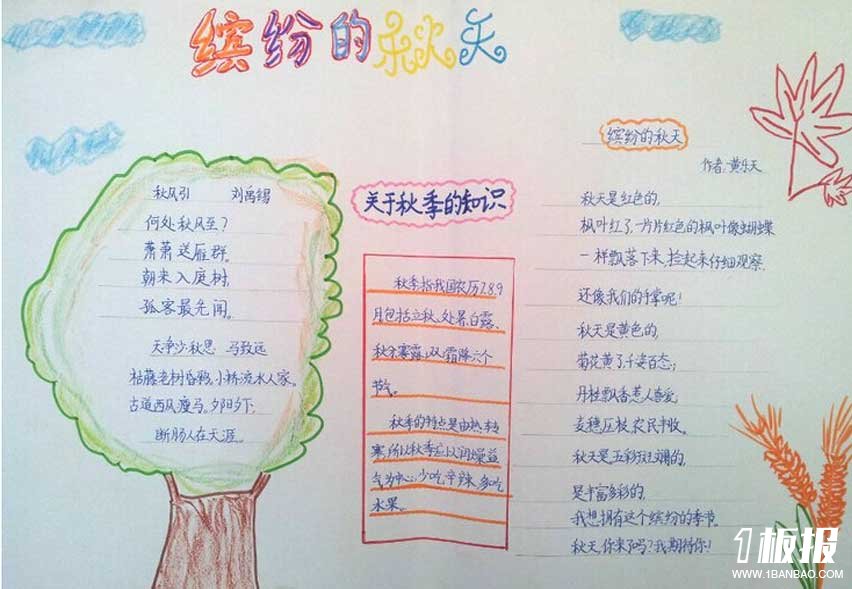 缤纷的秋天
秋风引 刘禹锡
何处秋风至?
萧萧送雁群。
朝来入庭树,
孤客最先闻。
天净沙秋思 马致远
枯藤老树昏鸦,小桥流水人家。
古道西风瘦马。夕阳夕下,
断肠人在天涯。
关于秋季的知识
秋季指我国农历7.8.9
月包括立秋、处暑、白露、
秋分寒露、霜降六个
节气。
秋季的特点是由热转
寒,所以秋季应以润燥益
气为中心,少吃辛辣,多吃
水果。
缤纷的秋天
作者:黄乐天
秋天是红色的,
枫叶红了,一片片红色的枫叶像蝴蝶
一样飘落下来,捡起来仔细观察,
还像我们的手掌呢!
秋天是黄色的,
菊花黄了,千姿百态;
丹桂飘香惹人喜爱;
麦穗压枝,农民丰收。
秋天是五彩斑斓的,
是丰富多彩的,
我想拥有这个缤纷的季节。
秋天,你来了吗?我期待你!
1板报
WWW.1BANBAO.COM